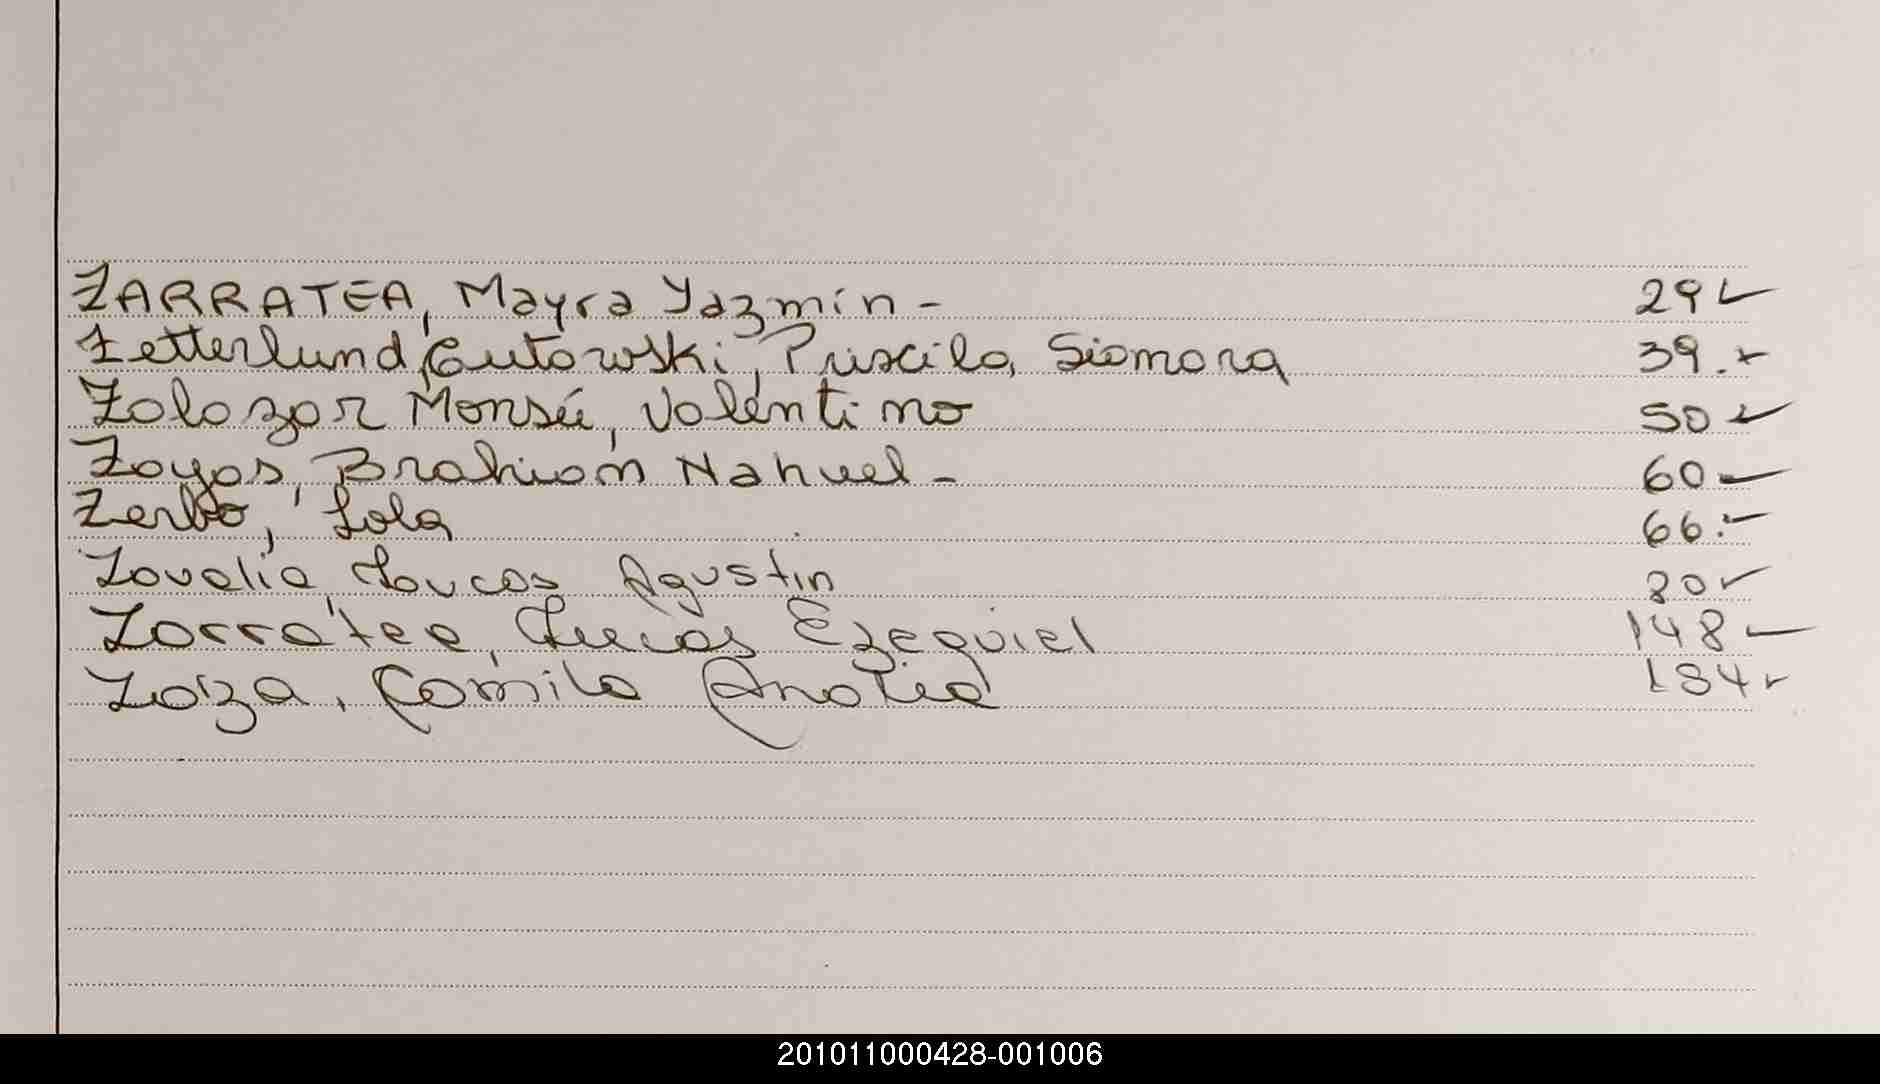 ZARRATEA, Mayra Yazmín - 29
Zetterlund Gutowski, Priscila Siomara 39.
Zalazar Monsú, Valentino 50
Zayas, Brahian Nahuel - 60
Zerbo, Lola 66.
Zavalía, Lucas Agustin 80
Zarratea, Lucas Ezequiel 148
Zoiza, Camila Analia 184
201011000428-001006